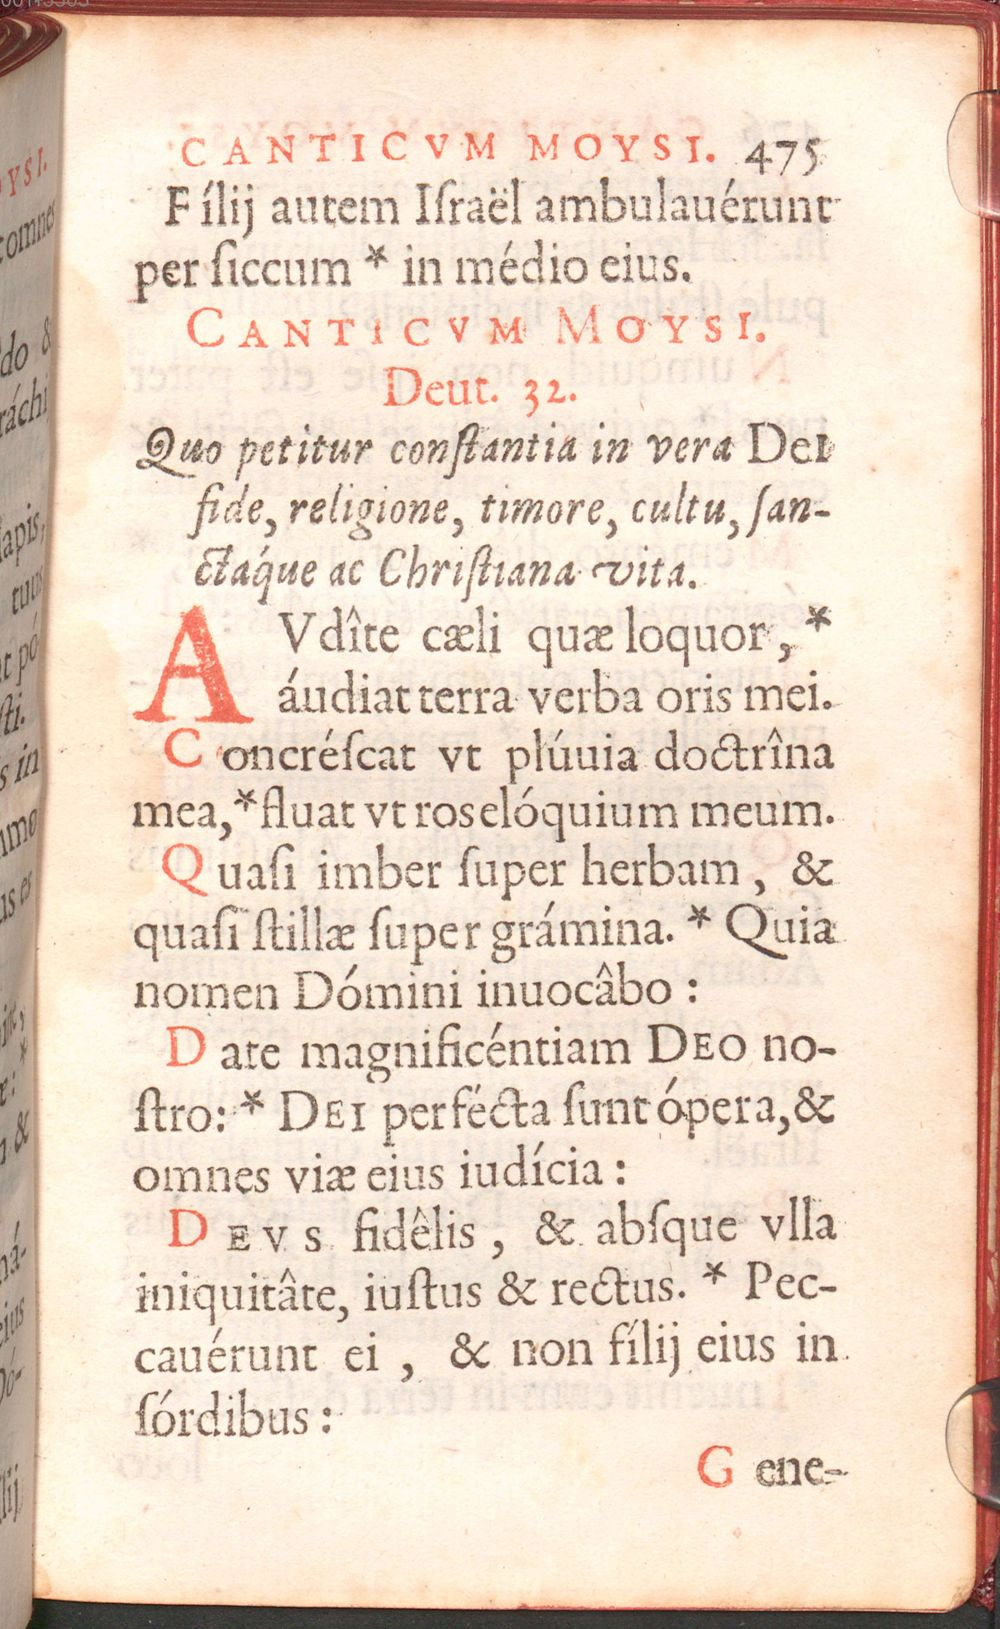 CANTICVM MOYSI. 475
Fílij autem Iſraël ambulauérunt
per ſiccum * in médio eius.
CANTICVM MOYSI.
Deut. 32.
Quo petitur conſtantia in vera DEI
fide, religione, timore, cultu, ſan-
ctaq́ue ac Chriſtiana vita.
AVdîte cæli quæ loquor, *
áudiat terra verba oris mei.
Concréſcat vt plúuia doctrîna
mea, * fluat vt ros elóquium meum.
Quaſi imber ſuper herbam, &
quaſi ſtillæ ſuper grámina. * Quia
nomen Dómini inuocâbo :
Date magnificéntiam DEO no-
ſtro: * DEI perfécta ſunt ópera, &
omnes viæ eius iudícia :
DEVS fidêlis, & abſque vlla
iniquitâte, iuſtus & rectus. * Pec-
cauérunt ei, & non fílij eius in
ſórdibus :
Gene-